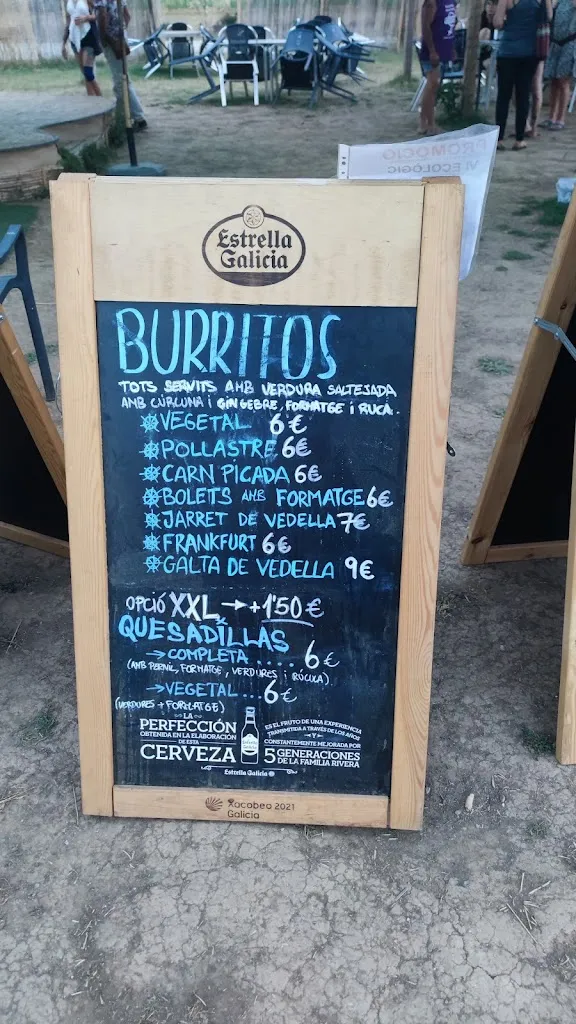 PROMOCIO
VI ECOLÒGIC
Estrella
Galicia
BURRITOS
TOTS SERVITS AMB VERDURA SALTEJADA
AMB CÚRCUMA I GINGEBRE, FORMATGE I RUCA.
VEGETAL 6€
POLLASTRE 6€
CARN PICADA 6€
BOLETS AMB FORMATGE 6€
JARRET DE VEDELLA 7€
FRANKFURT 6€
GALTA DE VEDELLA 9€
OPCIÓ XXL → +1'50 €
QUESADILLAS
→ COMPLETA .... 6€
(AMB PERNIL, FORMATGE, VERDURES I RÚCULA)
→ VEGETAL ... 6€
(VERDURES + FORMATGE)
LA
PERFECCIÓN
OBTENIDA EN LA ELABORACIÓN
DE ESTA
CERVEZA
ES EL FRUTO DE UNA EXPERIENCIA
TRANSMITIDA A TRAVÉS DE LOS AÑOS
Y
CONSTANTEMENTE MEJORADA POR
5 GENERACIONES
DE LA FAMILIA RIVERA
Estrella Galicia
Xacobeo 2021
Galicia